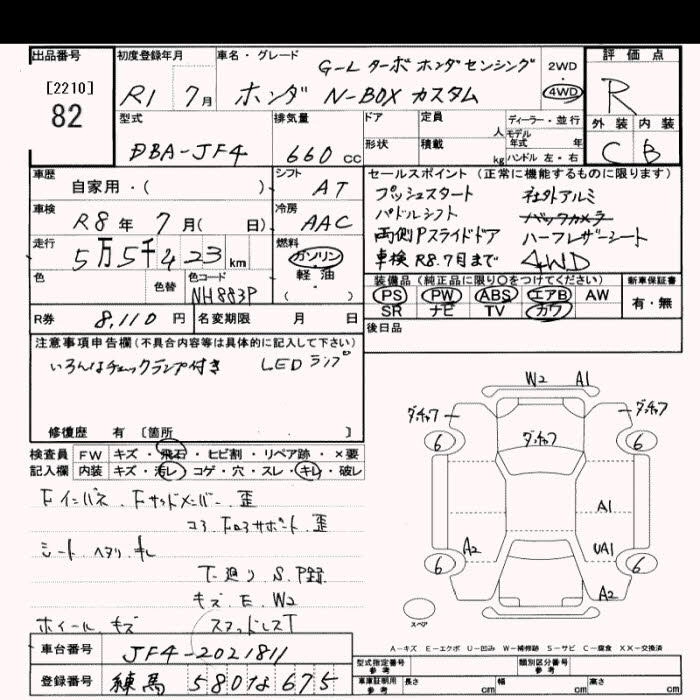 出品番号
[2210]
82
初度登録年月
R1 7月
車名・グレード
G-L ターボ ホンダ センシング
ホンダ N-BOX カスタム
2WD
・
4WD
評価点
R
外装 内装
C B
型式
DBA-JF4
排気量
660 cc
ドア
形状
定員 人
積載 kg
ディーラー・並行
モデル年式 年
ハンドル 左・右
車歴
自家用・( )
シフト
AT
車検
R8年 7月( 日)
冷房
AAC
走行
5万5千423km
燃料
ガソリン
軽油
( )
色
色替
色コード
NH883P
R券 8,110円
名変期限 月 日
セールスポイント (正常に機能するものに限ります)
プッシュスタート 社外アルミ
パドルシフト バックカメラ
両側Pスライドドア ハーフレザーシート
車検R8.7月まで 4WD
装備品 (純正品に限り○をつけてください)
PS PW ABS エアB AW
SR ナビ TV カワ
新車保証書
有・無
後日品
注意事項申告欄(不具合内容等は具体的に記入して下さい)
いろんなチェックランプ付き LEDランプ
修復歴 有 [箇所 ]
検査員記入欄
FW キズ・飛石・ヒビ割・リペア跡・×要
内装 キズ・汚レ・コゲ・穴・スレ・キレ・破レ
Fインパネ.Fサッドメンバー.歪
コアF.ロアサポート.歪
シート ヘタリ.キレ
T-廻り S.P録
キズ.E.W2
ホイール.キズ スタッドレスT
W2 A1
ダ.チャフ
ダ.チャフ
ダ.チャフ
6
6
A1
A2
UA1
6
6
A2
スペア
A-キズ E-エクボ U-凹み W-補修跡 S-サビ C-腐食 XX-交換済
車台番号
JF4-2021811
登録番号
練馬 580な675
型式指定番号 参考
類別区分番号 参考
車庫証明用 参考
長さ cm 幅 cm 高さ cm